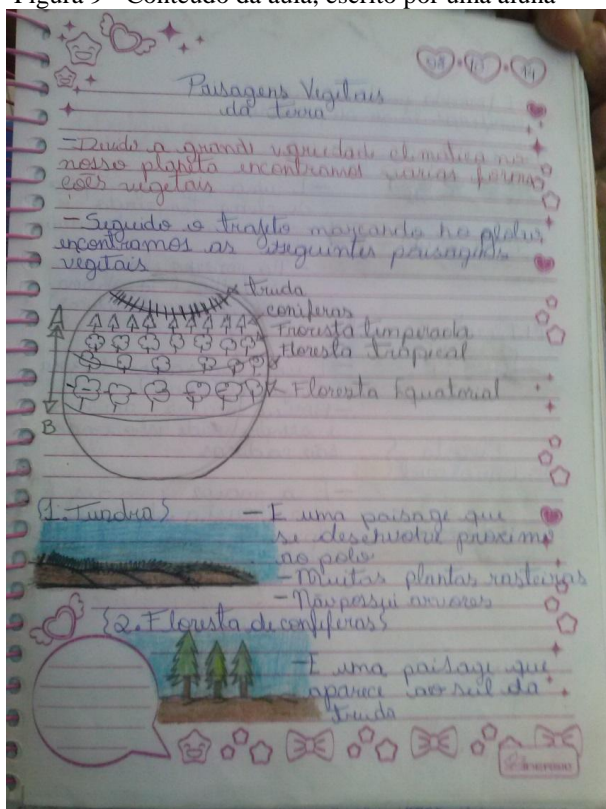 Figura 9 - Conteúdo da aula, escrito por uma aluna
Paisagens Vegitais
da tirra
- Divido a grandi climática no
nosso planita encontramos varias forma
coes vegetais
- Seguido o trafeto marcando no globu,
encontramos as seguintes paisagens
vegitais
truda
coniferas
Froresta timperada
Floresta Trapical
Floresta Equatorial
A
B
{1. Tundra}
- E uma paisage que
se desenvolve proximo
ao polo
- Muitas plantas rasteiras
- Não possui arvores
{2. Floresta de coniferas}
- E uma paisage que
aparece ao sul da
truda